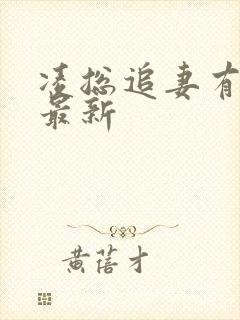 凌总追妻有
最新
黄蓓才